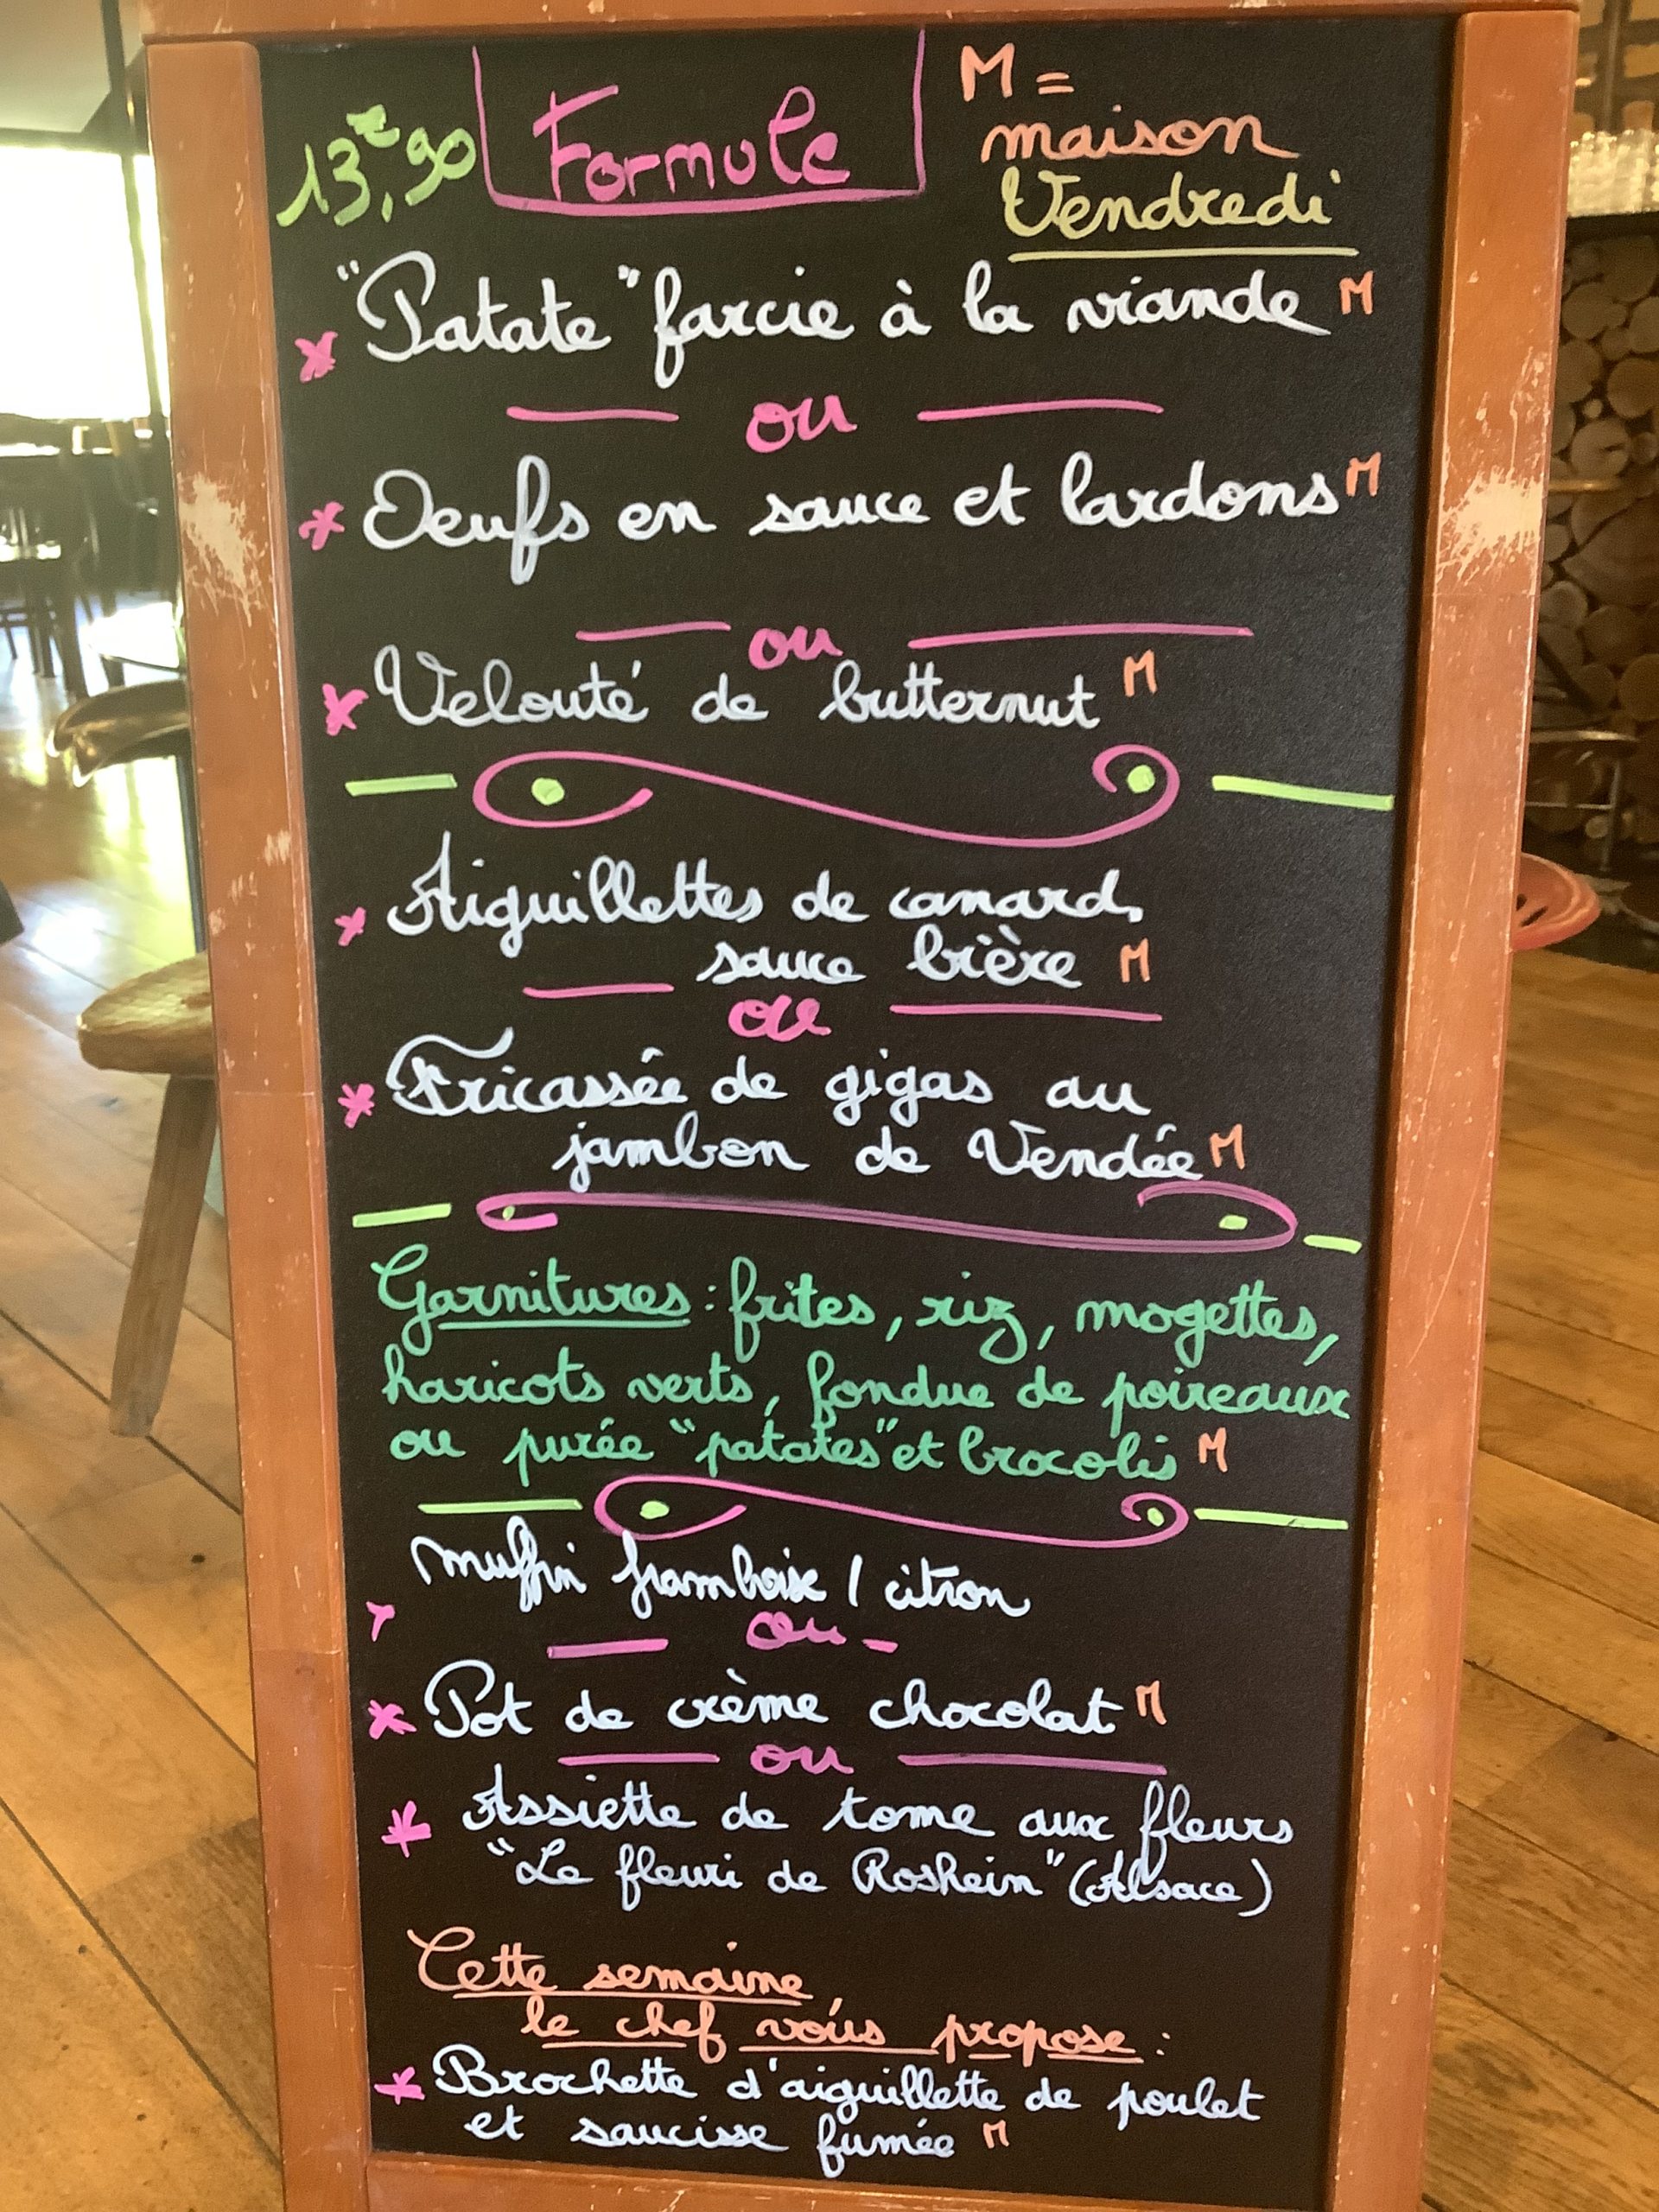 13€,90 Formule M =
maison
Vendredi
* "Patate" farcie à la viande M
ou
* Oeufs en sauce et lardons M
ou
* Velouté de butternut M
* Aiguillettes de canard,
sauce bière M
ou
* Fricassée de gigas au
jambon de Vendée M
Garnitures : frites, riz, mogettes,
haricots verts, fondue de poireaux
ou purée "patates" et brocolis M
* muffin framboise / citron
ou
* Pot de crème chocolat M
ou
* Assiette de tome aux fleurs
"Le fleuri de Rosheim" (Alsace)
Cette semaine,
le chef vous propose :
* Brochette d'aiguillette de poulet
et saucisse fumée M